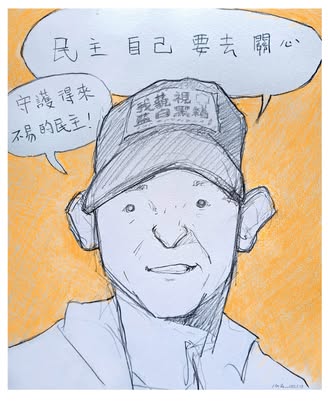 民主自己要去關心
守護得來
不易的民主!
我藐視
藍白黑箱